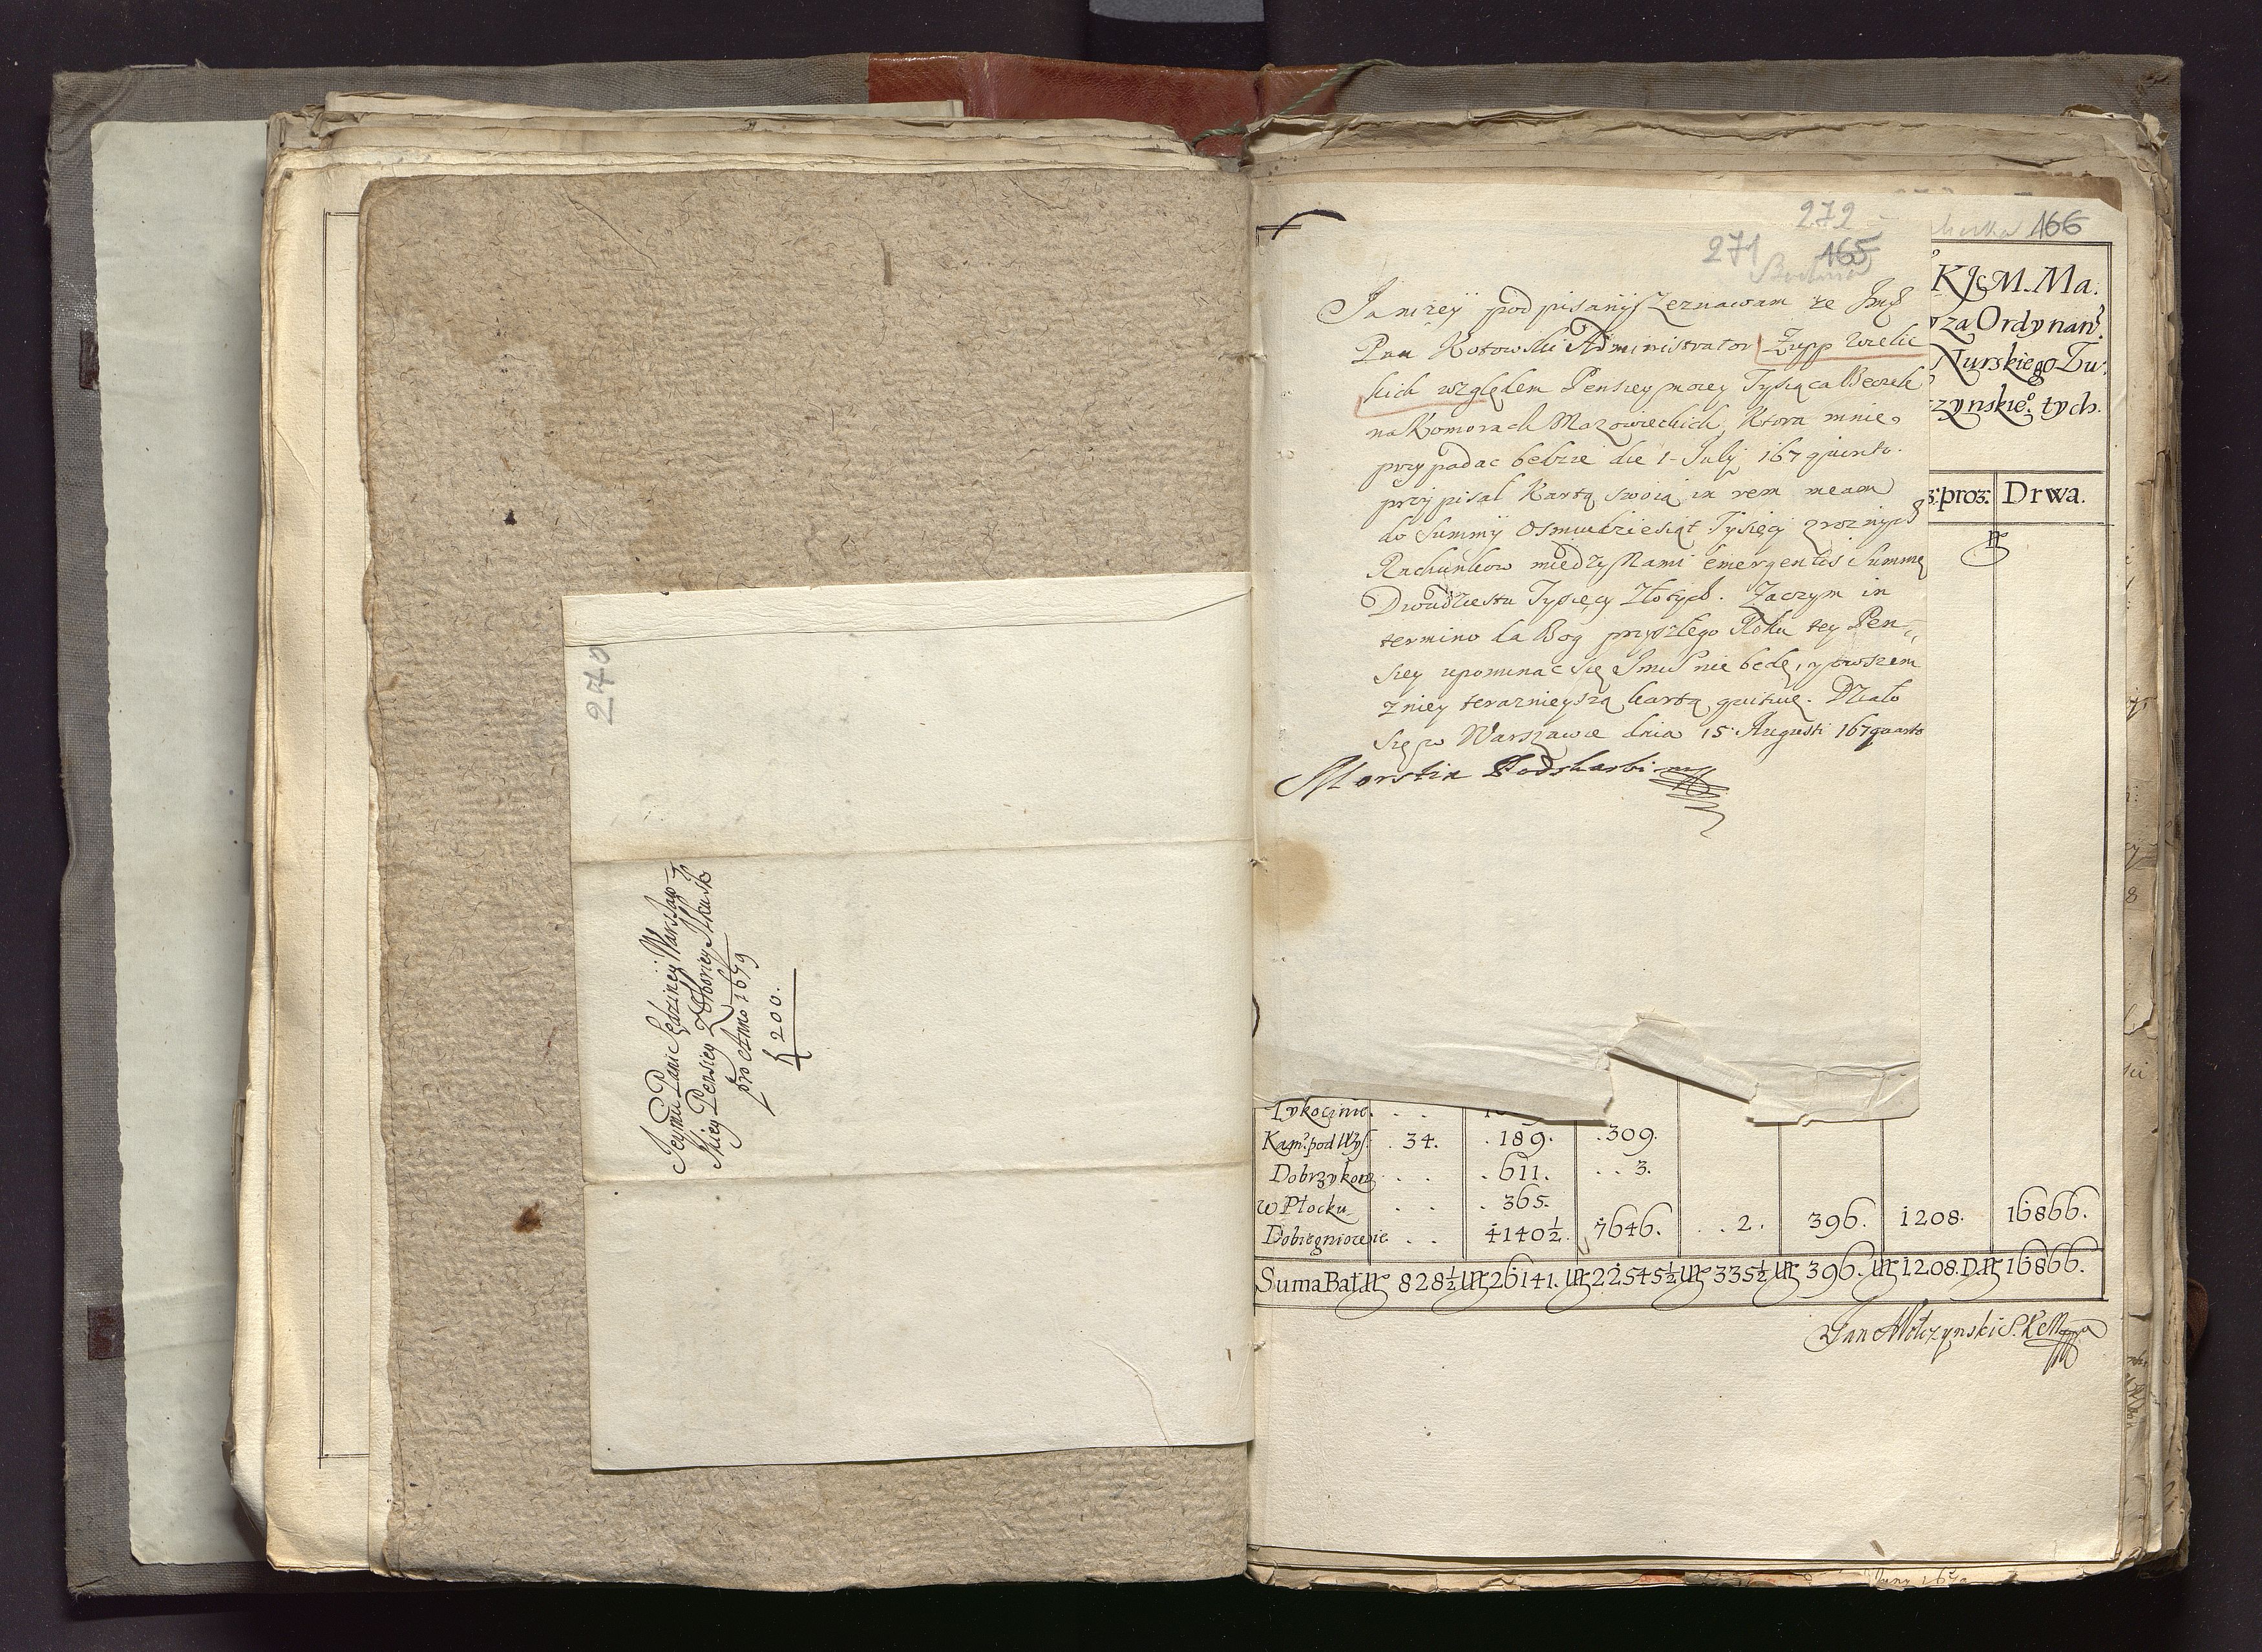 270
Jeymći Paniey Sędziney Warszaw-
skiey Pensiey Zobboriey Ilkusk
pro Anno 1679
f 200.
272
271 165
Ja niżey podpisany Zeznawam że Jmć
Pan Kotowski Administrator Zupp Wielic
kich względem Pensiey moiey Tysiąca Beczek
na Komorach Mazowieckich, Ktora mnie
przypadac bedzie die 1 July 167 quinto.
przypisal Kartą swoią in rem meam
do Summy Osmudziesiąt Tysięcy z roznych
Rachunkow między Nami emergentis Summę
Dwudziestu Tysięcy Złotych. Zaczym in
termino da Bog przyszlego Roku tey Pen-
siey upominac się Jmci nie będę, y owszem
z niey teraznieyszą kartą quituię. Działo
się w Warszawie dnia 15 Augusti 167 quarto
Morstin Podskarbi
166
KJcM. Ma:
za Ordynan
Nurskiego Lu:
zynskieo. tych.
proz: Drwa.
Tykocinie. . .
Kam: pod Wys. . 34. . 189. . 309.
Dobrzykow . . . 611. . . 3.
w Płocku . . . 365.
Dobiegniowie . . 4140½. 7646. . . 2. 396. 1208. 16866.
Suma Bał. 828½ 26141. 22545½ 335½ 396. 1208. D. 16866.
Jan Wolczynski S. K. M.